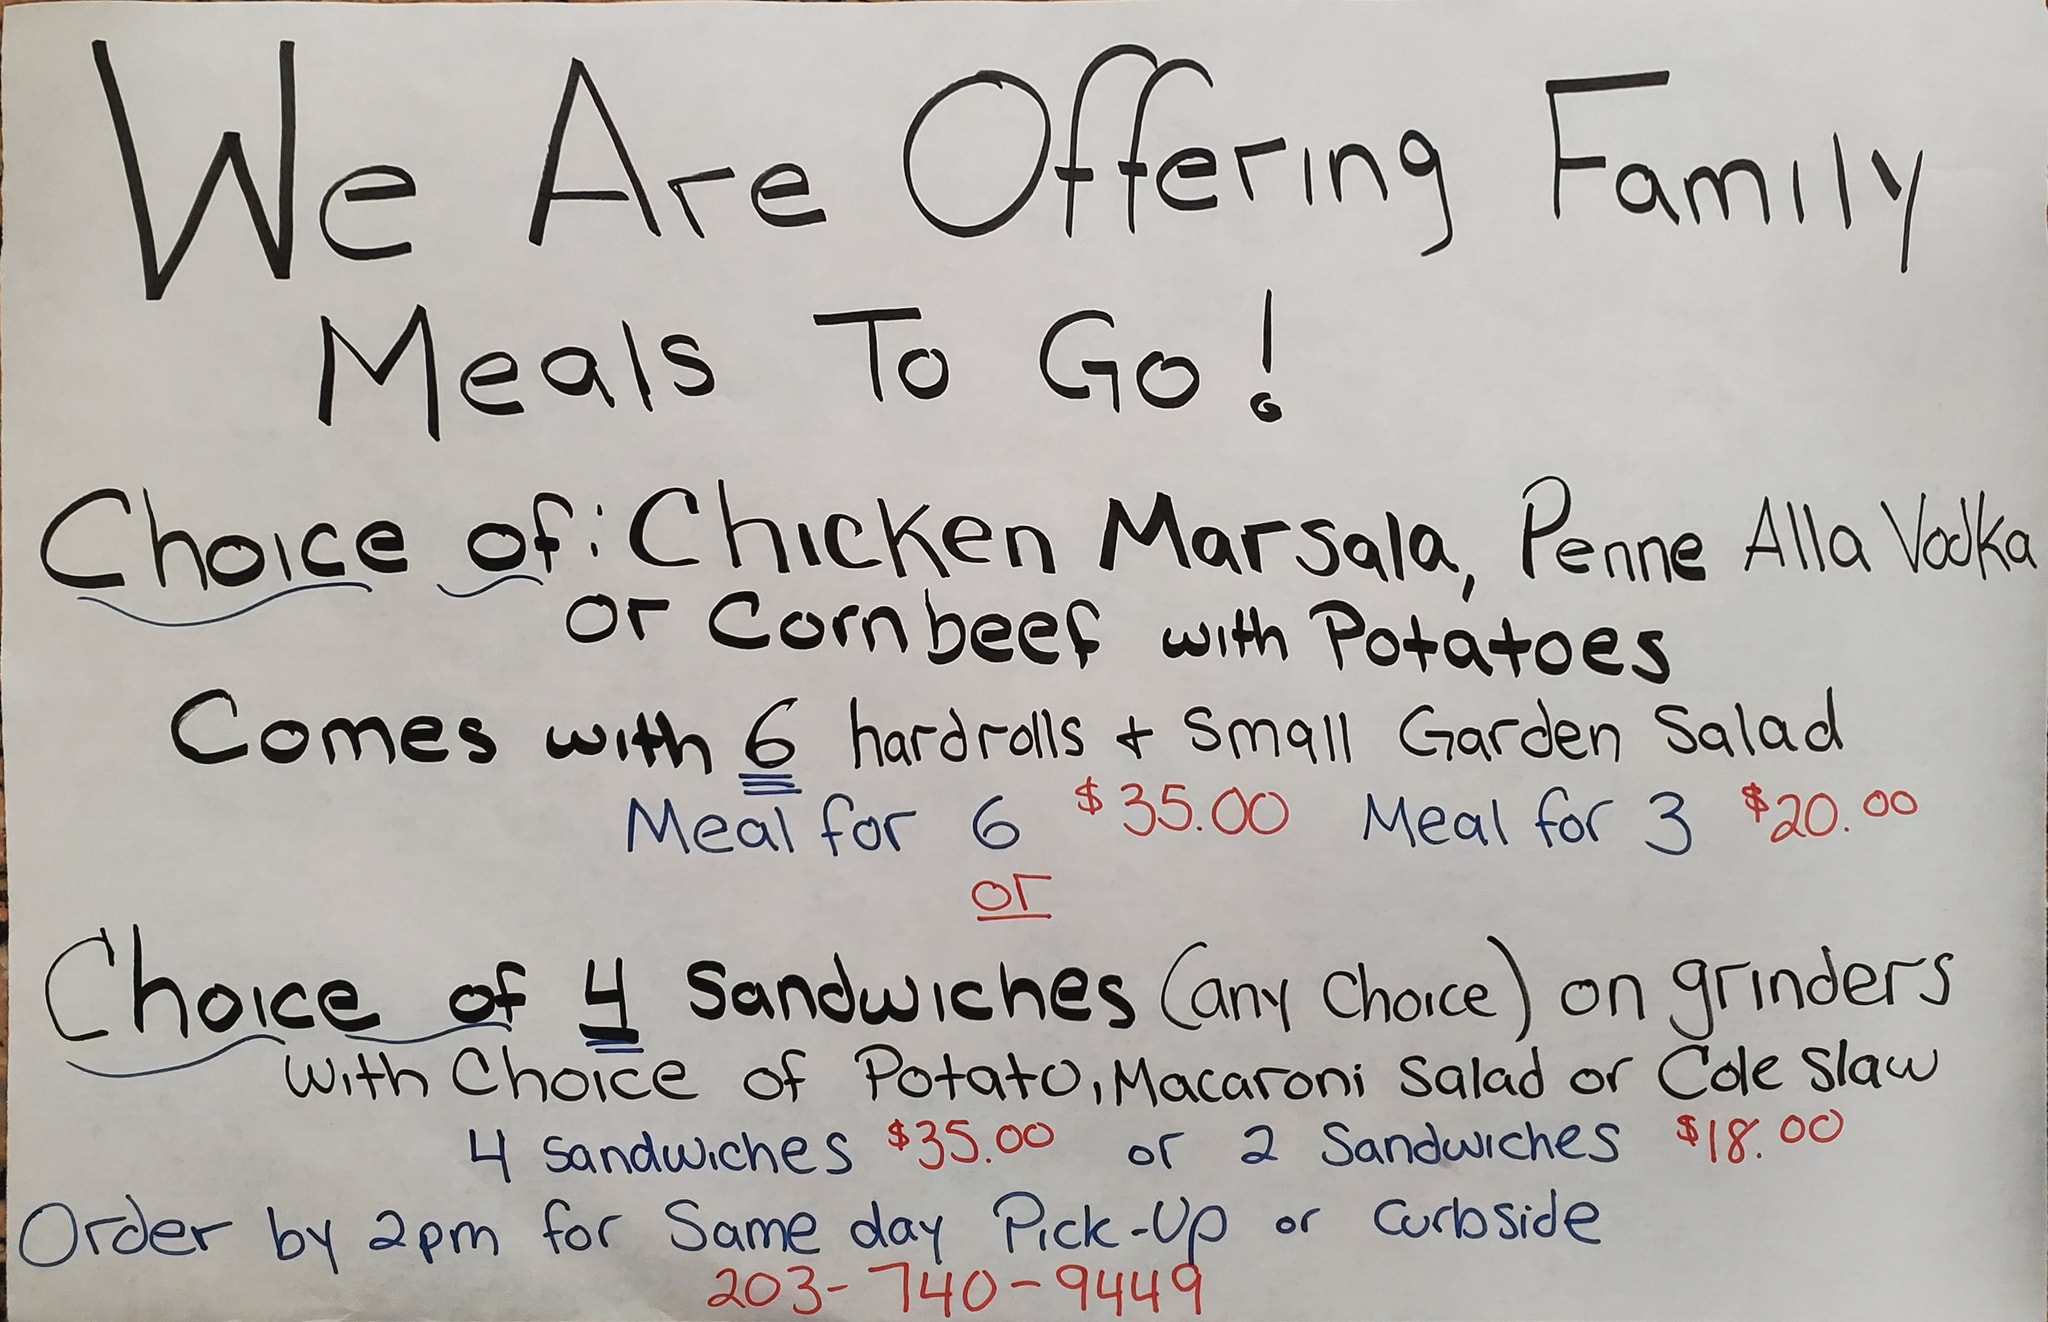 We Are Offering Family
Meals To Go!
Choice of: Chicken Marsala, Penne Alla Vodka
or Cornbeef with Potatoes
Comes with 6 hardrolls + Small Garden Salad
Meal for 6 $35.00 Meal for 3 $20.00
or
Choice of 4 Sandwiches (any Choice) on grinders
with Choice of Potato, Macaroni Salad or Cole Slaw
4 Sandwiches $35.00 or 2 Sandwiches $18.00
Order by 2pm for Same day Pick-Up or Curbside
203-740-9449